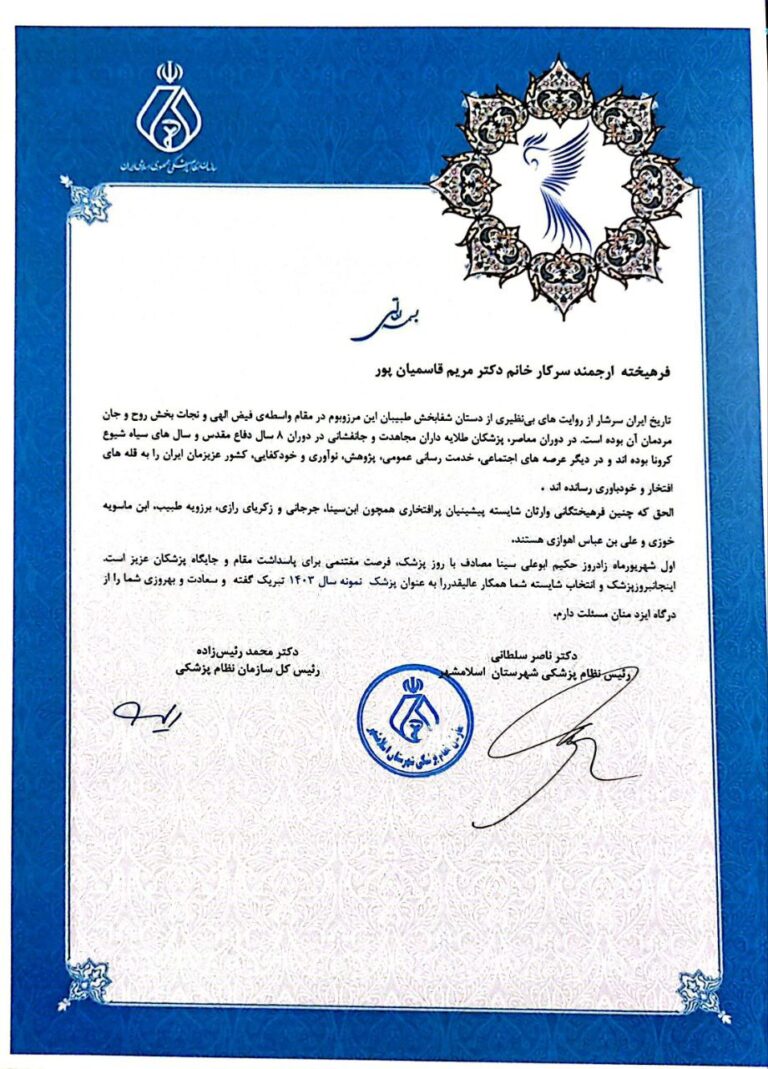 سازمان نظام پزشکی جمهوری اسلامی ایران
بسمه تعالی
فرهیخته ارجمند سرکار خانم دکتر مریم قاسمیان پور
تاریخ ایران سرشار از روایت های بی‌نظیری از دستان شفابخش طبیبان این مرزوبوم در مقام واسطه‌ی فیض الهی و نجات بخش روح و جان
مردمان آن بوده است. در دوران معاصر، پزشکان طلایه داران مجاهدت و جانفشانی در دوران ۸ سال دفاع مقدس و سال های سیاه شیوع
کرونا بوده اند و در دیگر عرصه های اجتماعی، خدمت رسانی عمومی، پژوهش، نوآوری و خودکفایی، کشور عزیزمان ایران را به قله های
افتخار و خودباوری رسانده اند .
الحق که چنین فرهیختگانی وارثان شایسته پیشینیان پرافتخاری همچون ابن‌سینا، جرجانی و زکریای رازی، برزویه طبیب، ابن ماسویه
خوزی و علی بن عباس اهوازی هستند.
اول شهریورماه زادروز حکیم ابوعلی سینا مصادف با روز پزشک، فرصت مغتنمی برای پاسداشت مقام و جایگاه پزشکان عزیز است.
اینجانبروزپزشک و انتخاب شایسته شما همکار عالیقدررا به عنوان پزشک نمونه سال ۱۴۰۳ تبریک گفته و سعادت و بهروزی شما را از
درگاه ایزد منان مسئلت دارم.
دکتر ناصر سلطانی
رئیس نظام پزشکی شهرستان اسلامشهر
دکتر محمد رئیس‌زاده
رئیس کل سازمان نظام پزشکی
سازمان نظام پزشکی شهرستان اسلامشهر